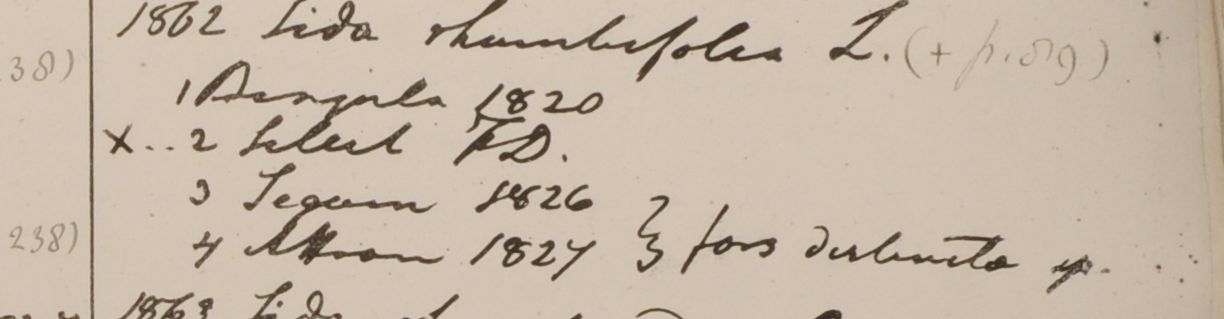 1862 Sida rhombifolia L. (+ p. 89)
38)
1 Bengala 1820
x.. 2 Silhet FD.
3 Segain 1826
238)
4 Attran 1827 } fors distincta sp.
1863 Sida